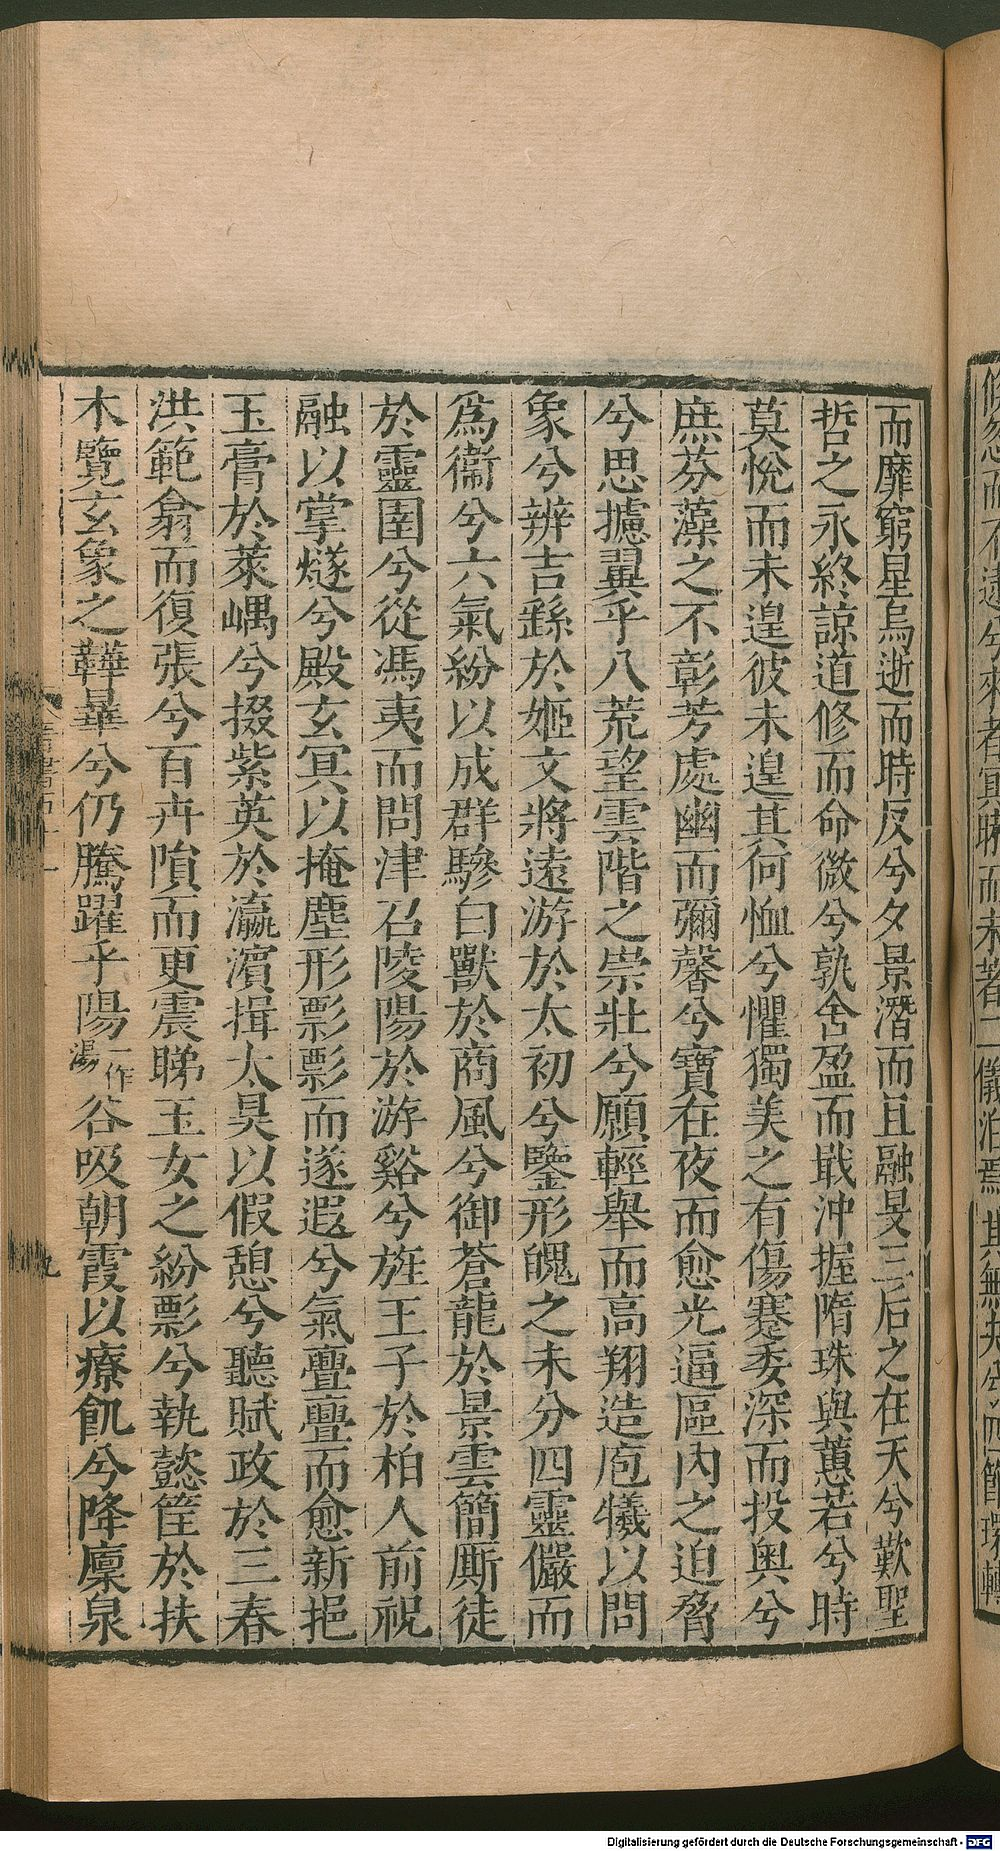 而靡窮星烏逝而時反兮夕景潛而且融旻三后之在天兮歎聖
哲之永終諒道修而命微兮孰舍盈而戢沖握隋珠與蕙若兮時
莫悅而未遑彼未遑其何恤兮懼獨美之有傷蹇委深而投奥兮
庶芬藻之不彰芳處幽而彌馨兮寶在夜而愈光逼區内之迫脅
兮思攄翼乎八荒望雲階之崇壯兮願輕舉而高翔造庖犧以問
象兮辨吉繇於姬文將遠游於太初兮鑒形魄之未分四靈儼而
爲衞兮六氣紛以成群驂白獸於商風兮御蒼龍於景雲簡厮徒
於靈圉兮從馮夷而問津召陵陽於游谿兮旌王子於柏人前祝
融以掌燧兮殿玄冥以掩塵形影影而遂遐兮氣亹亹而愈新挹
玉膏於萊嵎兮掇紫英於瀛濱揖太昊以假憩兮聽賦政於三春
洪範翕而復張兮百卉隕而更震睇玉女之紛影兮執懿筐於扶
木覽玄象之韡曅兮仍騰躍乎陽一作湯谷吸朝霞以療飢兮降廩泉
九
Digitalisierung gefördert durch die Deutsche Forschungsgemeinschaft - DFG